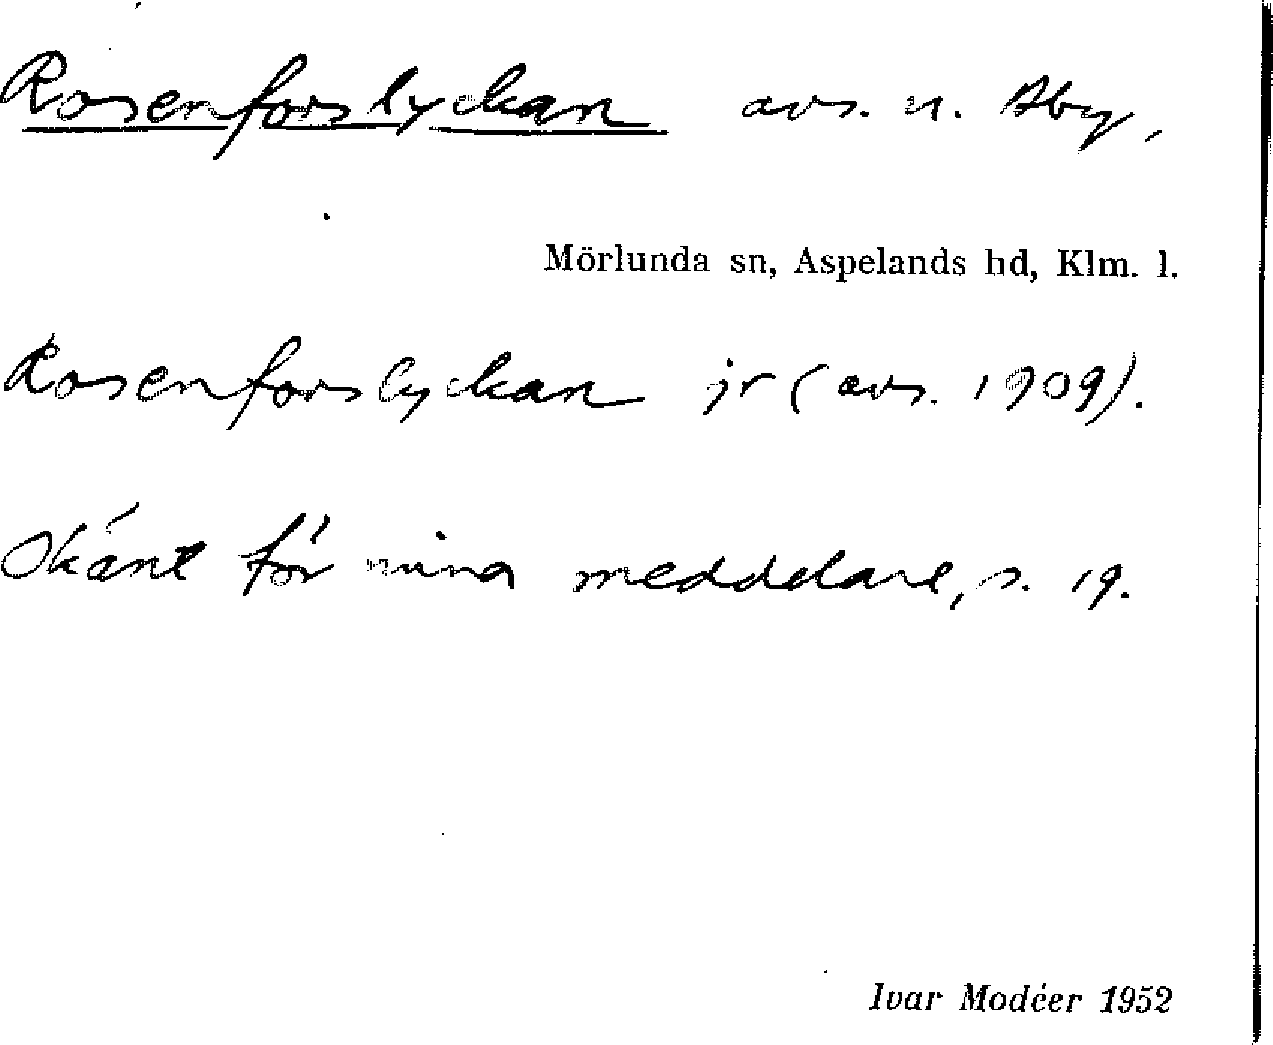 Rosenforslyckan avs. u. Åby,
Mörlunda sn, Aspelands hd, Klm. l.
Rosenforslyckan jr (avs. 1909).
Okänt för mina meddelare, s. 19.
Ivar Modéer 1952